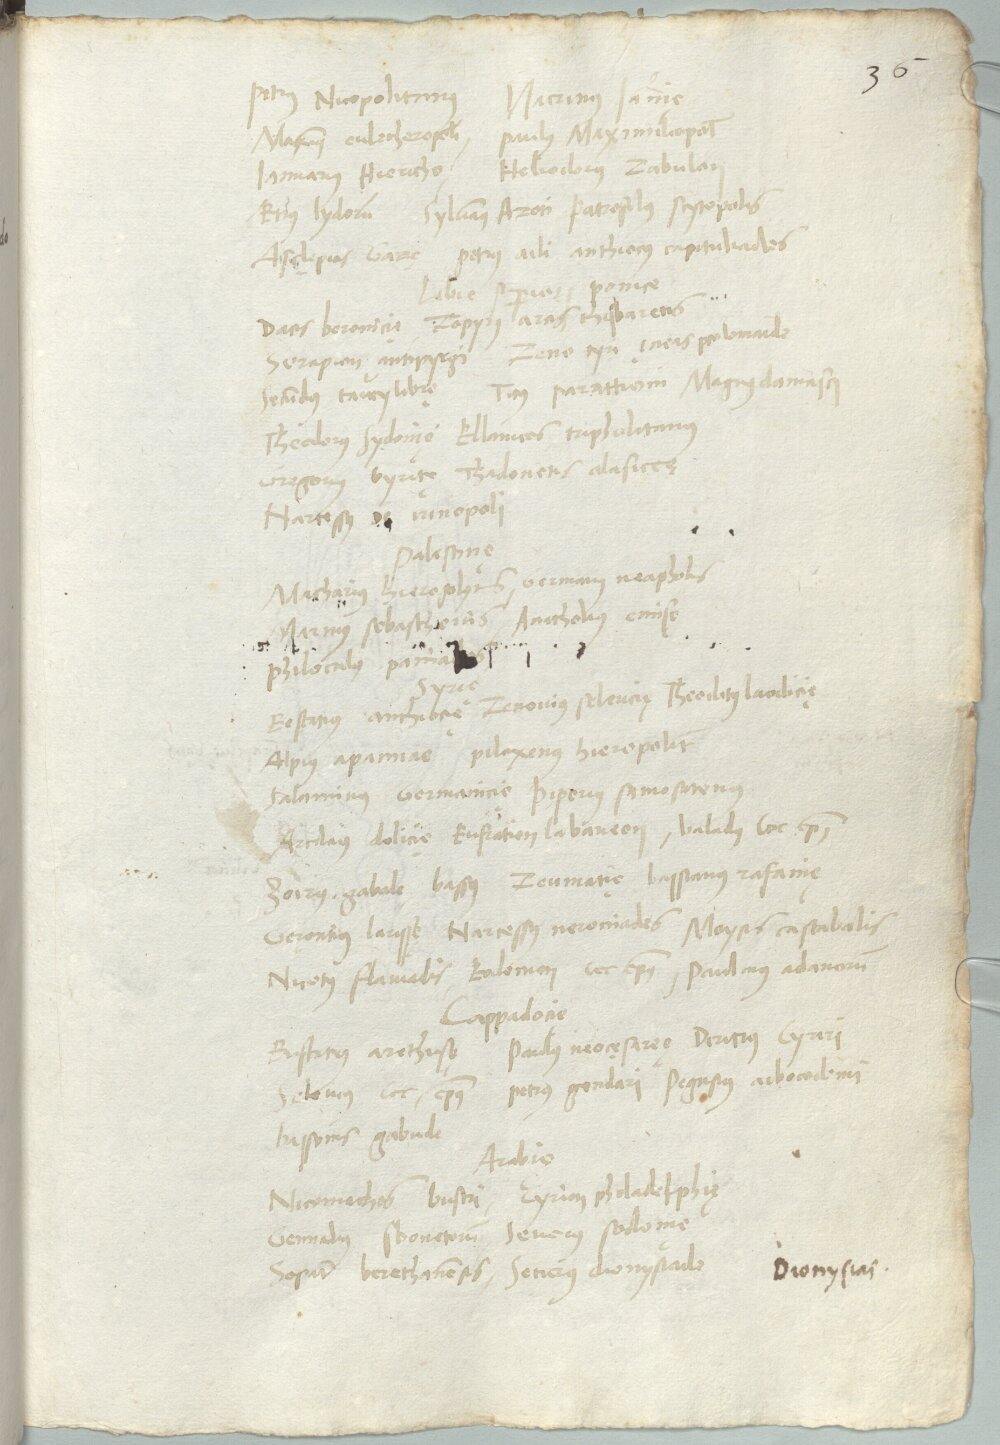 36
Petrus Nicopolitanus Macrinus Iamnie
Maximus euletheropoli, paulus Maximilicopol
Ianuarius Hiericho, Heliodorus Zabulon
Etius lydorum Sylvanus Azoti Patrofilus scytopolis
Asclepius Gaze petrus aili anthiocus capituliades
Libie superioris, penice
Daces beronicie Zopyri
Serapion antipyrgi Zeno tyri eneas ptolomaide
Secundus taucy libie Titus parattoni Magnus damasci
Theodorus sydonie Ellanicos tripholitanus
Gregorius byrite Thadonetis alasices
Narcessus de irinopoli
Palestine
Macharius hierosolymis, Germanus neapholis
Marinus sebasthenus, Anatholius emise
Philocalus
Syrie
Eostatius anthiocie Zenovius seleucie Theoditus laodicie
Alpius apamiae piloxenus hieropolit
Salaminus Germanicie piperius samosatenus
Arcdaius dolicie Eustation labaneon, baladus Coc. epus
Zoirus. gabale bassus Zeumatie bassianus rafanie
Gerontius larisse Narcessus neroniades Moyses castabalis
Nicetus flaviadis, Eodomon coc epus, Paulinus adanorum
Cappadocie
Eustatius arethuse Paulus neocesaree Deritius Cyriri
Seleucus coc. epus petrus gendari Pegasus arbocodemi
bassonis gabude
Arabie
Nicomachos bustri, Cyrion philadelphie
Gennadius sbonetorum Severus sodomie
Sopater berethanensis, Severus dionysiade Dionysias.